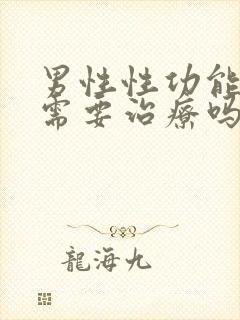 男性性功能
需要治療吗
龍海九